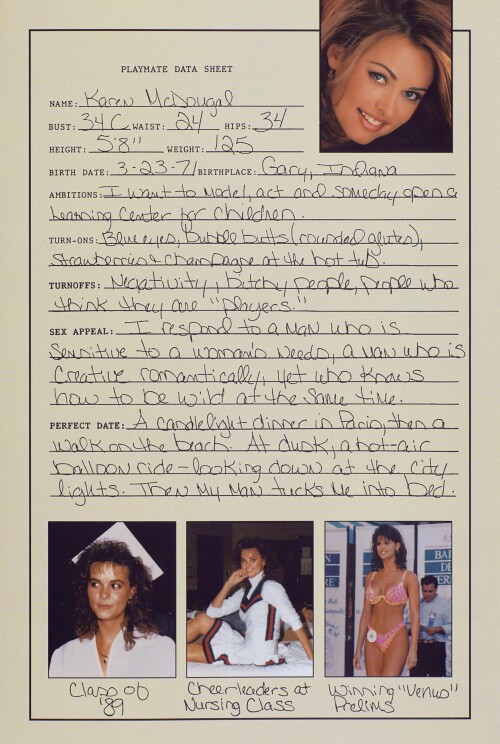 PLAYMATE DATA SHEET
NAME: Karen McDougal
BUST: 34C WAIST: 24 HIPS: 34
HEIGHT: 5'8" WEIGHT: 125
BIRTH DATE: 3-23-71 BIRTHPLACE: Gary, Indiana
AMBITIONS: I want to model, act and someday open a
Learning Center for children.
TURN-ONS: Blue eyes, bubble butts (rounded glutes),
strawberries & champagne at the hot tub.
TURNOFFS: Negativity, bitchy people, people who
think they are "players."
SEX APPEAL: I respond to a man who is
sensitive to a woman's needs, a man who is
creative romantically, yet who knows
how to be wild at the same time.
PERFECT DATE: A candlelight dinner in Paris, then a
walk on the beach. At dusk, a hot-air
balloon ride – looking down at the city
lights. Then my man tucks me into bed.
Class of
'89
Cheerleaders at
Nursing Class
Winning "Venus"
Prelims